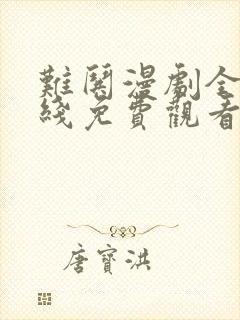 難閱漫劇全
綫免費觀看
唐寶洪